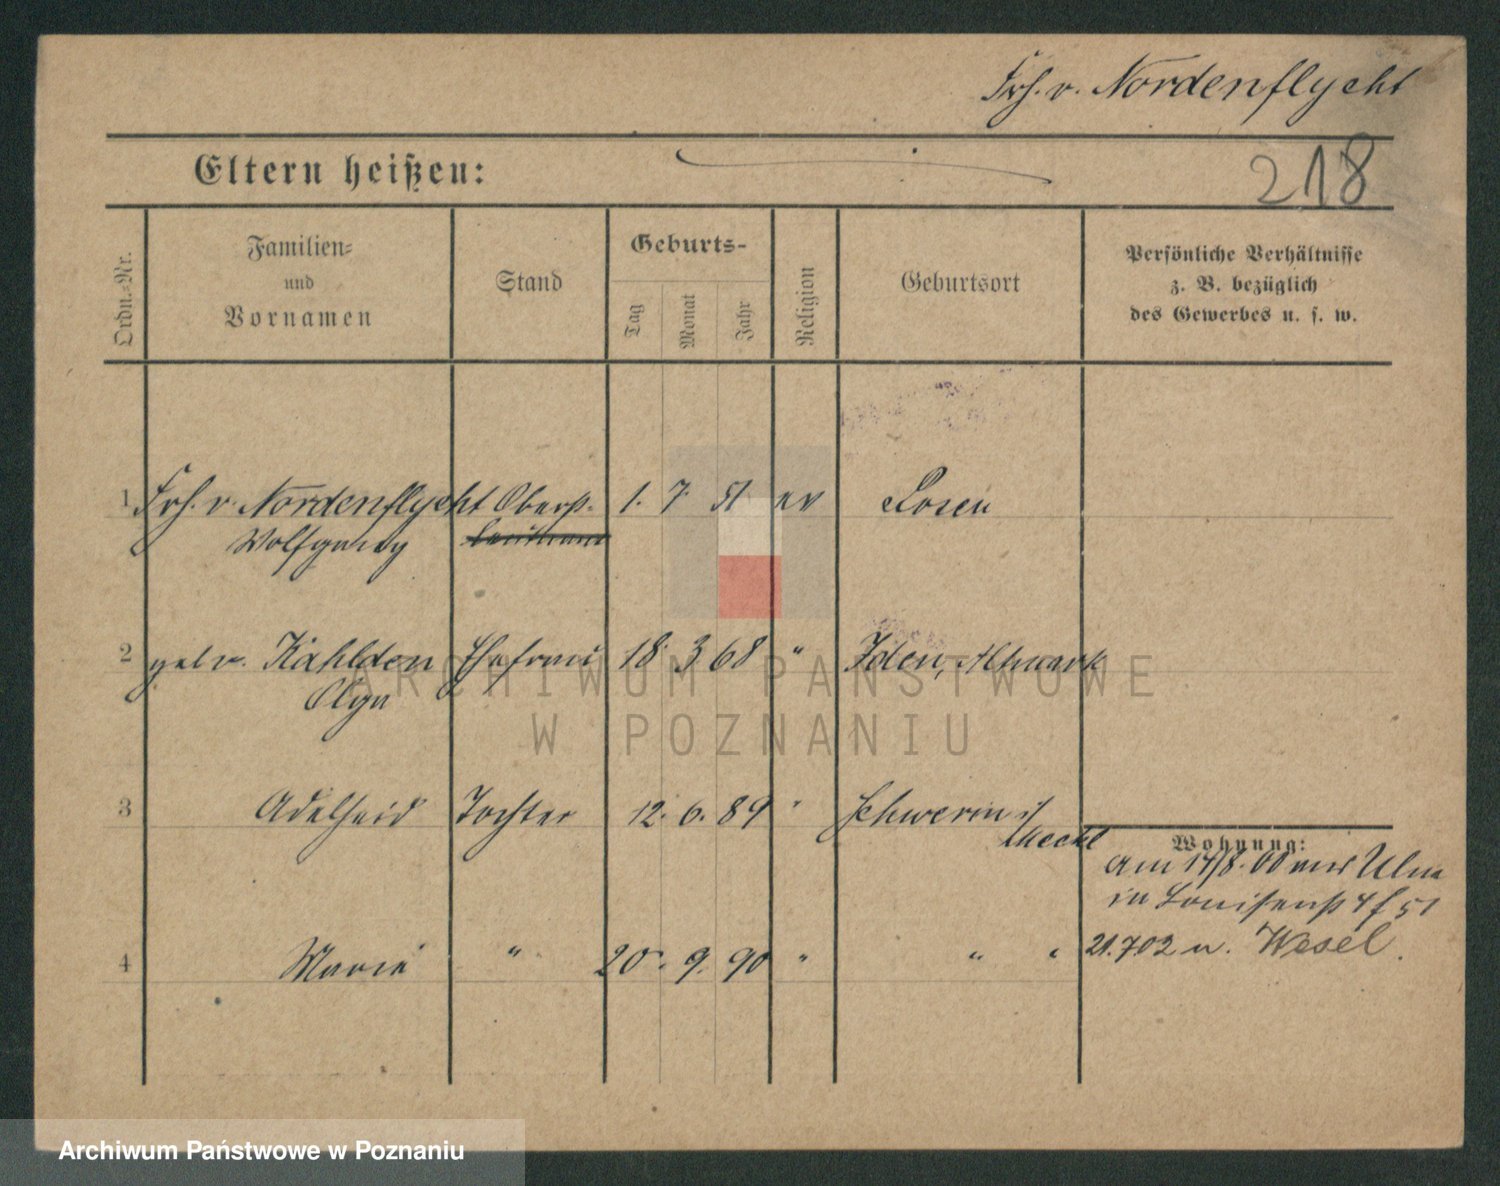 Frh. v. Nordenflycht
Eltern heißen:
218
Ordn.-Nr.
Familien-
und
Vornamen
Stand
Geburts-
Tag
Monat
Jahr
Religion
Geburtsort
Persönliche Verhältnisse
z. B. bezüglich
des Gewerbes u. s. w.
1 Frh. v. Nordenflycht Oberst- 1. 7. 51 ev Posen
Wolfgang
2 geb v. Kahlden Ehefrau 18. 3 68 " Iden, Altmark
Olga
3 Adelheid Tochter 12. 6. 89 " Schwerin i/
Meckl
4 Marie " 20. 9. 90 " " "
Wohnung:
Am 14/8. 00 aus Ulm
in Louisenst 4 f 51
21.702 n. Wesel.
ARCHIWUM PAŃSTWOWE
W POZNANIU
Archiwum Państwowe w Poznaniu